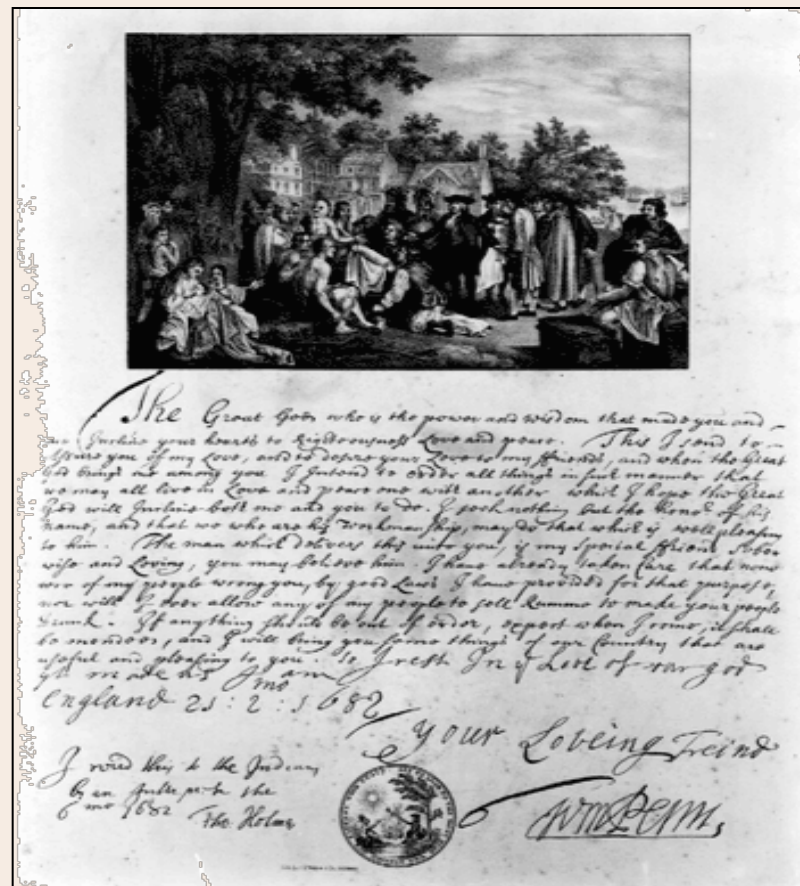 The Great God who is the power and wisdom that made you and
me Incline your hearts to Righteousness Love and peace. This I send to
Assure you of my Love, and to desire your Love to my ffriends, and when the Great
God brings me among you I Intend to order all things in such manner that
we may all live in Love and peace one with another which I hope the Great
God will Incline both me and you to do. I seek nothing but the honor of his
name, and that we who are his workmanship, may do that which is well pleasing
to him. The man which delivers this unto you, is my Special ffriend Sober
wise and Loving, you may beleeve him. I have already taken Care that none
of my people wrong you, by good Laws I have provided for that purpose,
nor will I ever allow any of my people to sell Rumme to make your people
Drunk. If anything should be out of order, expect when I come, it shall
be mended, and I will bring you some things of our Country that are
usefull and pleasing to you. So I rest In ye Love of our god
yt made us I am
England 21 : 2 : mo 1682
your Loveing Freind
I read this to the Indians
by an Interpreter the
6 mo 1682 Tho Holme
Wm Penn,